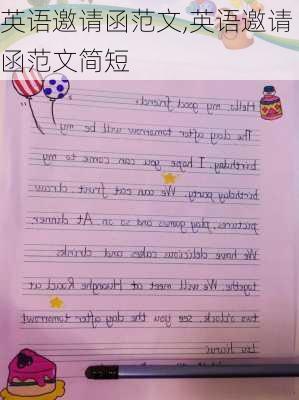 英语邀请函范文,英语邀请
函范文简短
Hello, my good friend.
The day after tomorrow will be my
birthday. I hope you can come to my
birthday party. We can eat fruit, draw
pictures, play games and so on. At dinner
We have delicious cakes and drinks
togethe. We will meet at Huanghe Road at
two o'clock. see you the day after tomorrow!